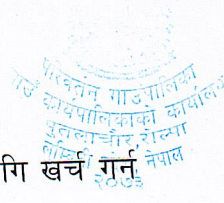 परिवर्तन गाउँपालिका
गाउँ कार्यपालिकाको कार्यालय
पुतलाचौर रोल्पा
लुम्बिनी नेपाल
२०७३
गि खर्च गर्न